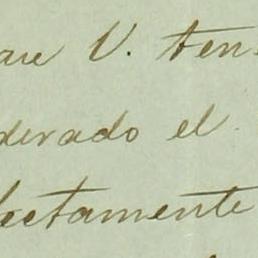 que V. ten
derado el
lectamente